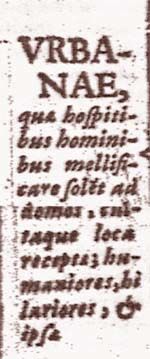 VRBA-
NAE,
quæ hoſpiti-
bus homini-
bus mellifi-
care ſolẽt ad
domos, cul-
taque loca
recepta; hu-
maniores, hi
lariores, &
ipſæ